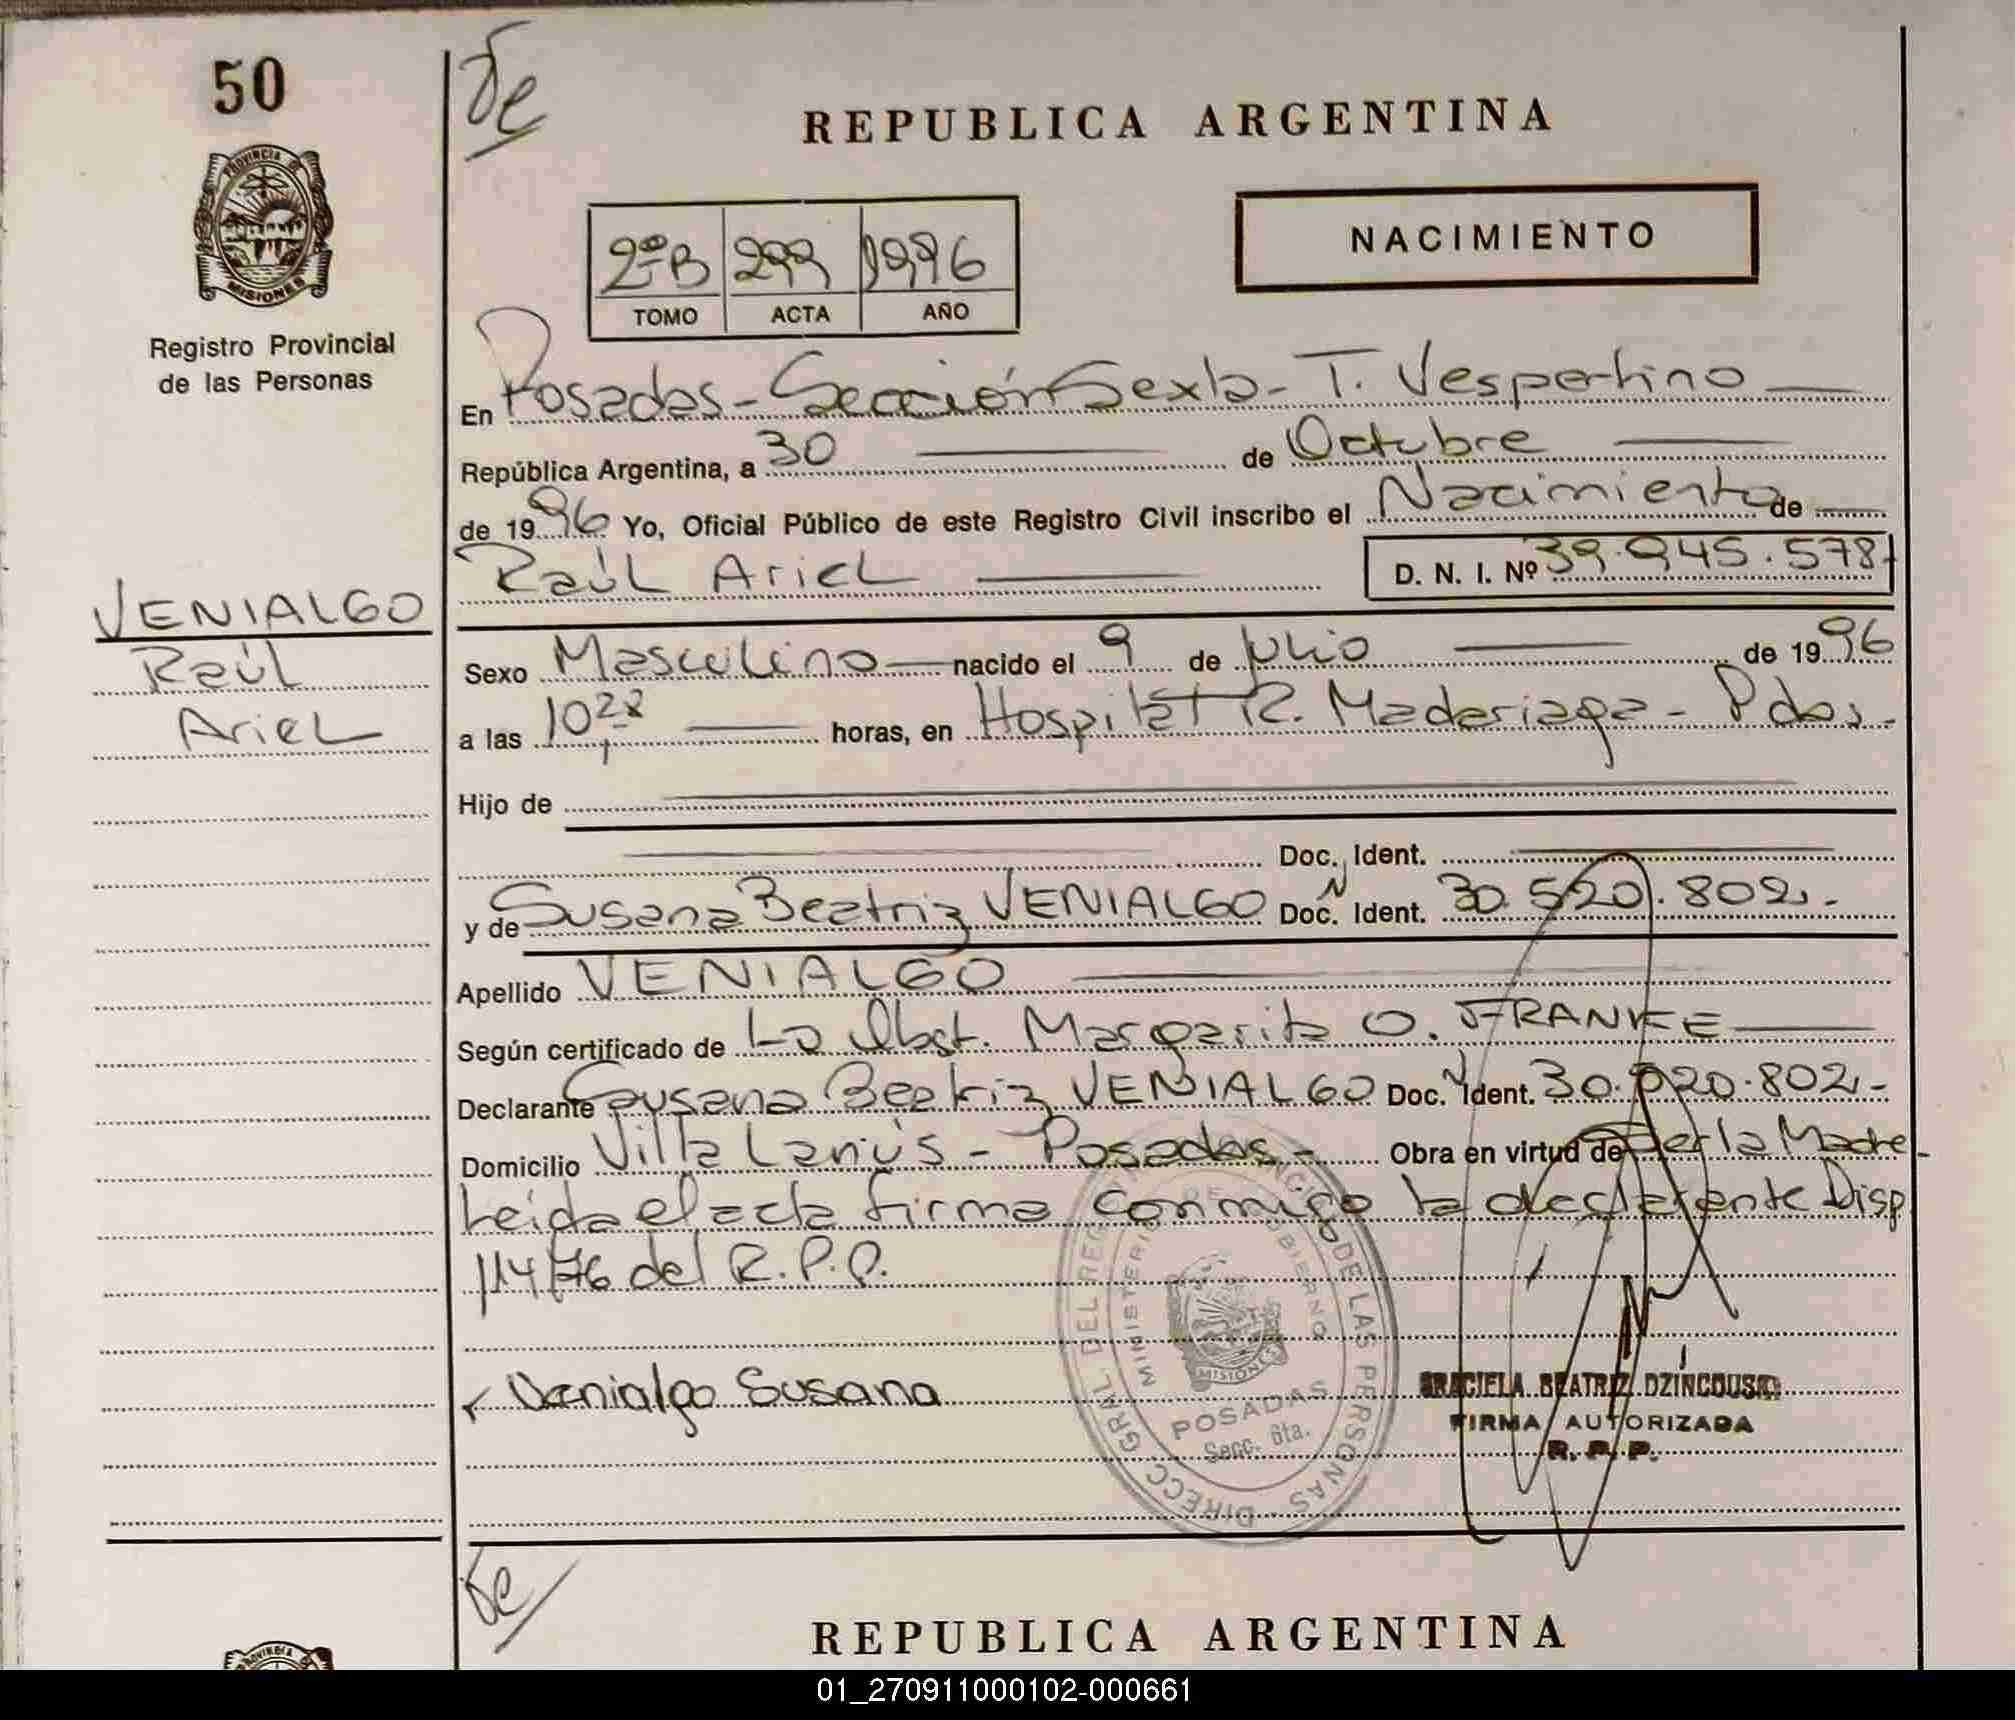 50
REPUBLICA ARGENTINA
PROVINCIA DE
MISIONES
Registro Provincial
de las Personas
NACIMIENTO
2º B 299 1996
TOMO ACTA AÑO
En Posadas - Sección Sexta - T. Vespertino
República Argentina, a 30 de Octubre
de 1996 Yo, Oficial Público de este Registro Civil inscribo el Nacimiento de
Raúl Ariel D. N. I. Nº 39.945.578
VENIALGO
Raúl
Ariel
Sexo Masculino nacido el 9 de Julio de 1996
a las 10 28 horas, en Hospital R. Madariaga - Pdas.
Hijo de
Doc. Ident.
y de Susana Beatriz VENIALGO Doc. N Ident. 30.520.802.-
Apellido VENIALGO
Según certificado de La Obst. Margarita O. FRANKE
Declarante Susana Beatriz VENIALGO Doc. N Ident. 30.520.802.-
Domicilio Villa Lanús - Posadas - Obra en virtud de Ser la Madre -
Leida el acta firma conmigo la declarante Disp
114/76 del R.P.P.
Venialgo Susana
DIRECC GRAL. DEL REG. PROVINCIAL DE LAS PERSONAS
MINISTERIO DE GOBIERNO
MISIONES
POSADAS
Secc. 6ta.
GRACIELA BEATRIZ DZINCOUSKI
FIRMA AUTORIZADA
R. P. P.
REPUBLICA ARGENTINA
01_270911000102-000661